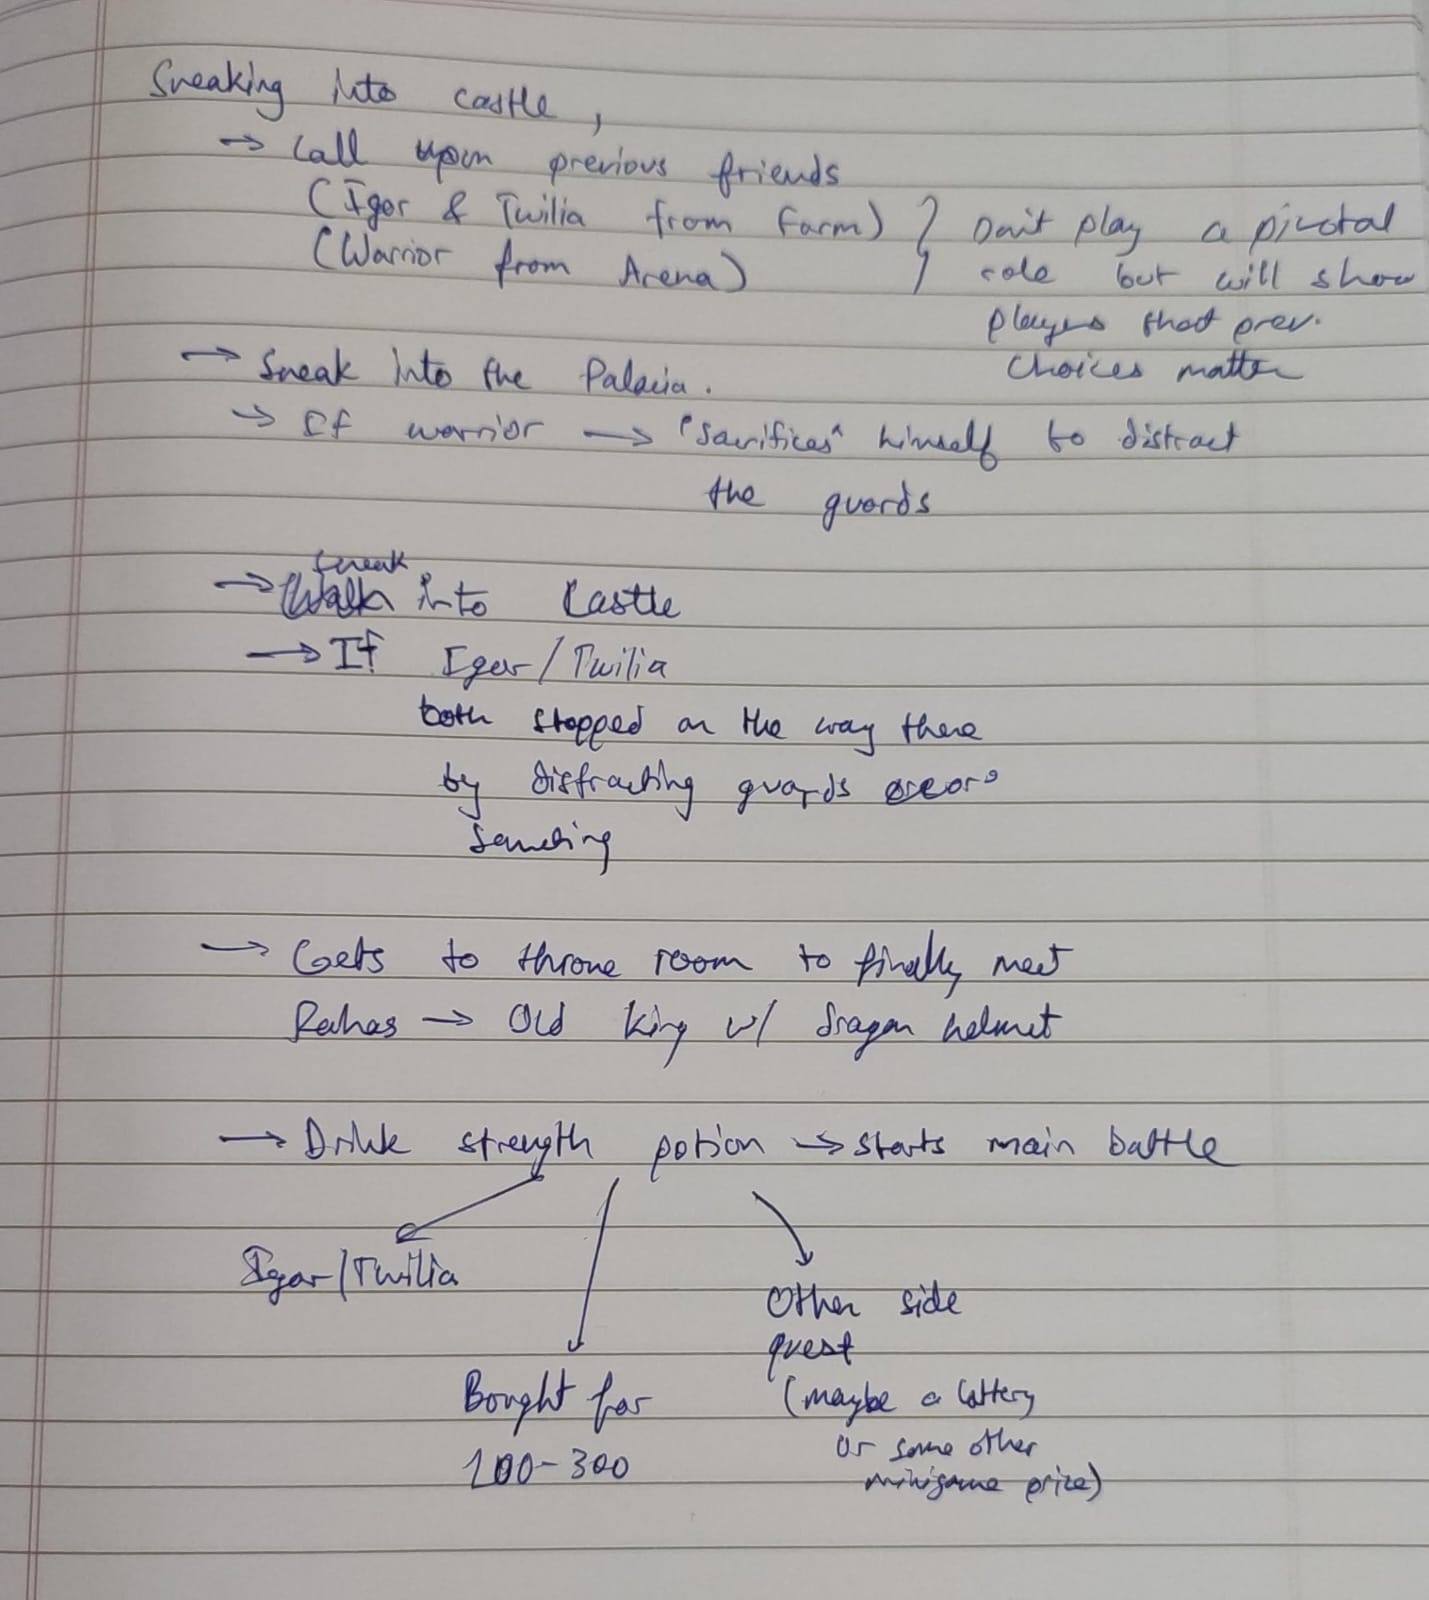 Sneaking into castle,
→ Call upon previous friends
(Igor & Twilia from Farm) } Don't play a pivotal
(Warrior from Arena) role but will show
players that prev.
choices matter
→ Sneak into the Palacia.
→ If warrior → "Sacrifices" himself to distract
the guards
sneak
→ Walk into Castle
→ If Igor/Twilia
both stopped on the way there
by distracting guards or
→ Gets to throne room to finally meet
Rahas → Old king w/ dragon helmet
→ Drink strength potion → starts main battle
Igor/Twilia
Other side
quest
Bought for
(maybe a lottery
or some other
100-300
minigame prize)